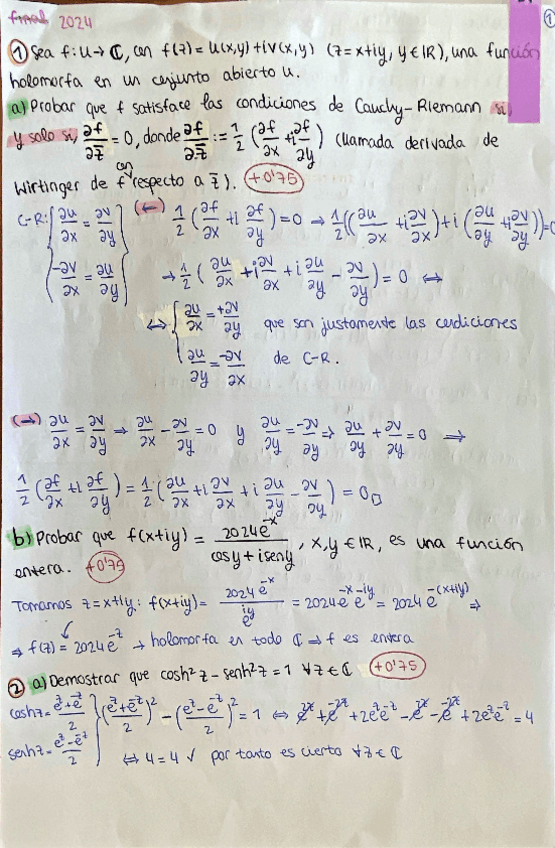 final 2024
①
① Sea f: U → ℂ, con f(z) = u(x,y) + iv(x,y) (z=x+iy, y ∈ ℝ), una función
holomorfa en un conjunto abierto U.
a) Probar que f satisface las condiciones de Cauchy-Riemann si
y solo si, ∂f/∂z̄ = 0, donde ∂f/∂z̄ := 1/2 (∂f/∂x + i∂f/∂y) (llamada derivada de
Wirtinger de f con respecto a z̄). +0'75
C-R: { ∂u/∂x = ∂v/∂y (←) 1/2 (∂f/∂x + i ∂f/∂y) = 0 → 1/2((∂u/∂x + i∂v/∂x) + i(∂u/∂y + i∂v/∂y)) = 0
-∂v/∂x = ∂u/∂y } → 1/2 (∂u/∂x + i∂v/∂x + i∂u/∂y - ∂v/∂y) = 0 ⇔
⇔ { ∂u/∂x = +∂v/∂y que son justamente las condiciones
∂u/∂y = -∂v/∂x de C-R.
(→) ∂u/∂x = ∂v/∂y → ∂u/∂x - ∂v/∂y = 0 y ∂u/∂y = -∂v/∂y ⇒ ∂u/∂y + ∂v/∂y = 0 ⇒
1/2 (∂f/∂x + i∂f/∂y) = 1/2 (∂u/∂x + i∂v/∂x + i∂u/∂y - ∂v/∂y) = 0 □
b) Probar que f(x+iy) = 2024e^-x/(cosy + iseny), x,y ∈ ℝ, es una función
entera. +0'75
Tomamos z=x+iy: f(x+iy) = 2024e^-x/e^iy = 2024e^-x e^-iy = 2024e^-(x+iy) ⇒
⇒ f(z) = 2024e^-z → holomorfa en todo ℂ ⇒ f es entera
② a) Demostrar que cosh²z - senh²z = 1 ∀z ∈ ℂ +0'75
coshz = (e^z + e^-z)/2 } ((e^z + e^-z)/2)² - ((e^z - e^-z)/2)² = 1 ⇔ e^2z + e^-2z + 2e^z e^-z - e^2z - e^-2z + 2e^z e^-z = 4
senhz = (e^z - e^-z)/2 ⇔ 4 = 4 ✓ por tanto es cierto ∀z ∈ ℂ